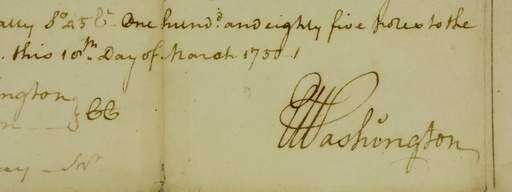 8° 45 Et. One hundd. and eighty five Poles to the
this 10th Day of March 1750/1
ington
CC
GWashington